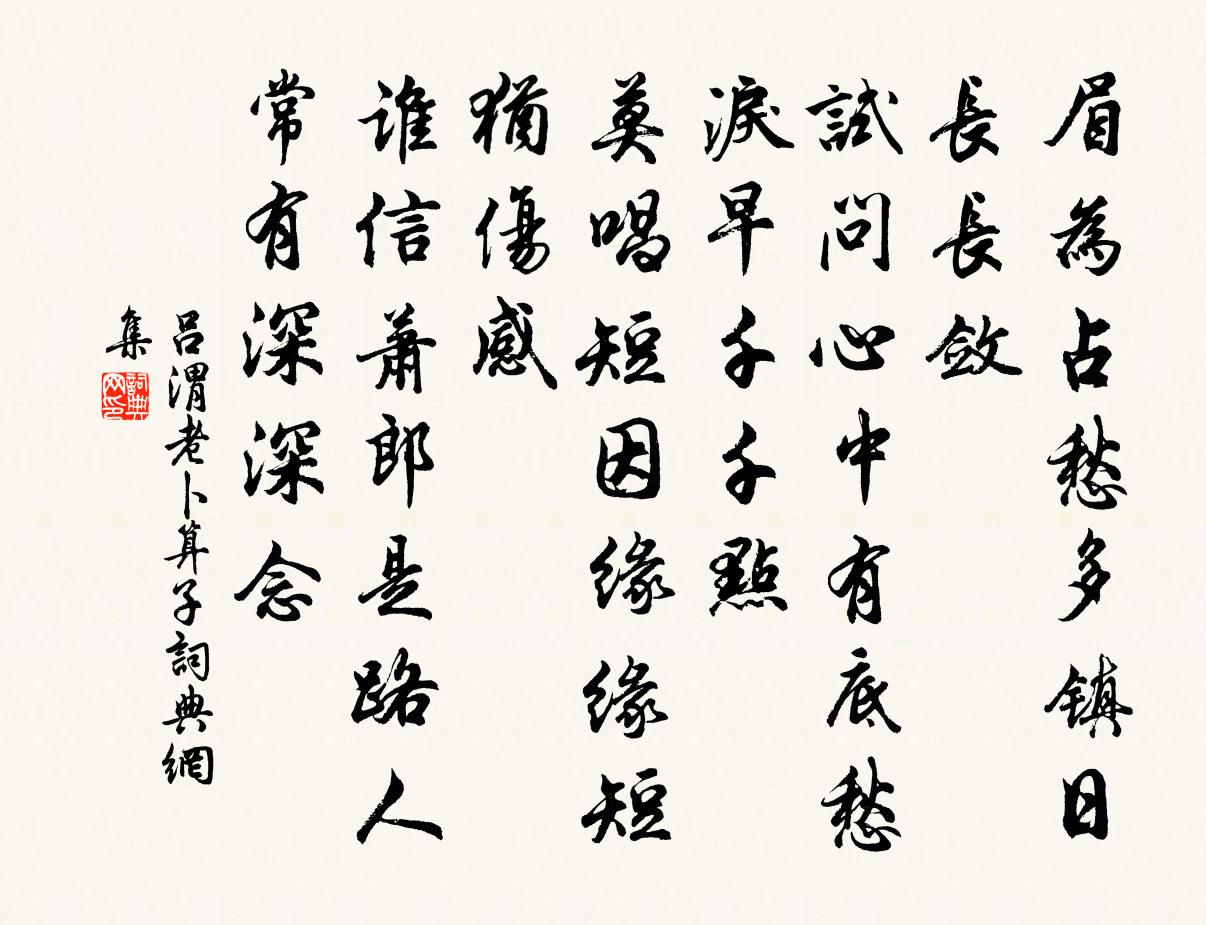 眉為占愁多鎮日
長長斂
試問心中有底愁
淚早千千點
莫唱短因緣緣短
猶傷感
誰信蕭郎是路人
常有深深念
呂渭老卜算子詞典網
集
詞典
网印